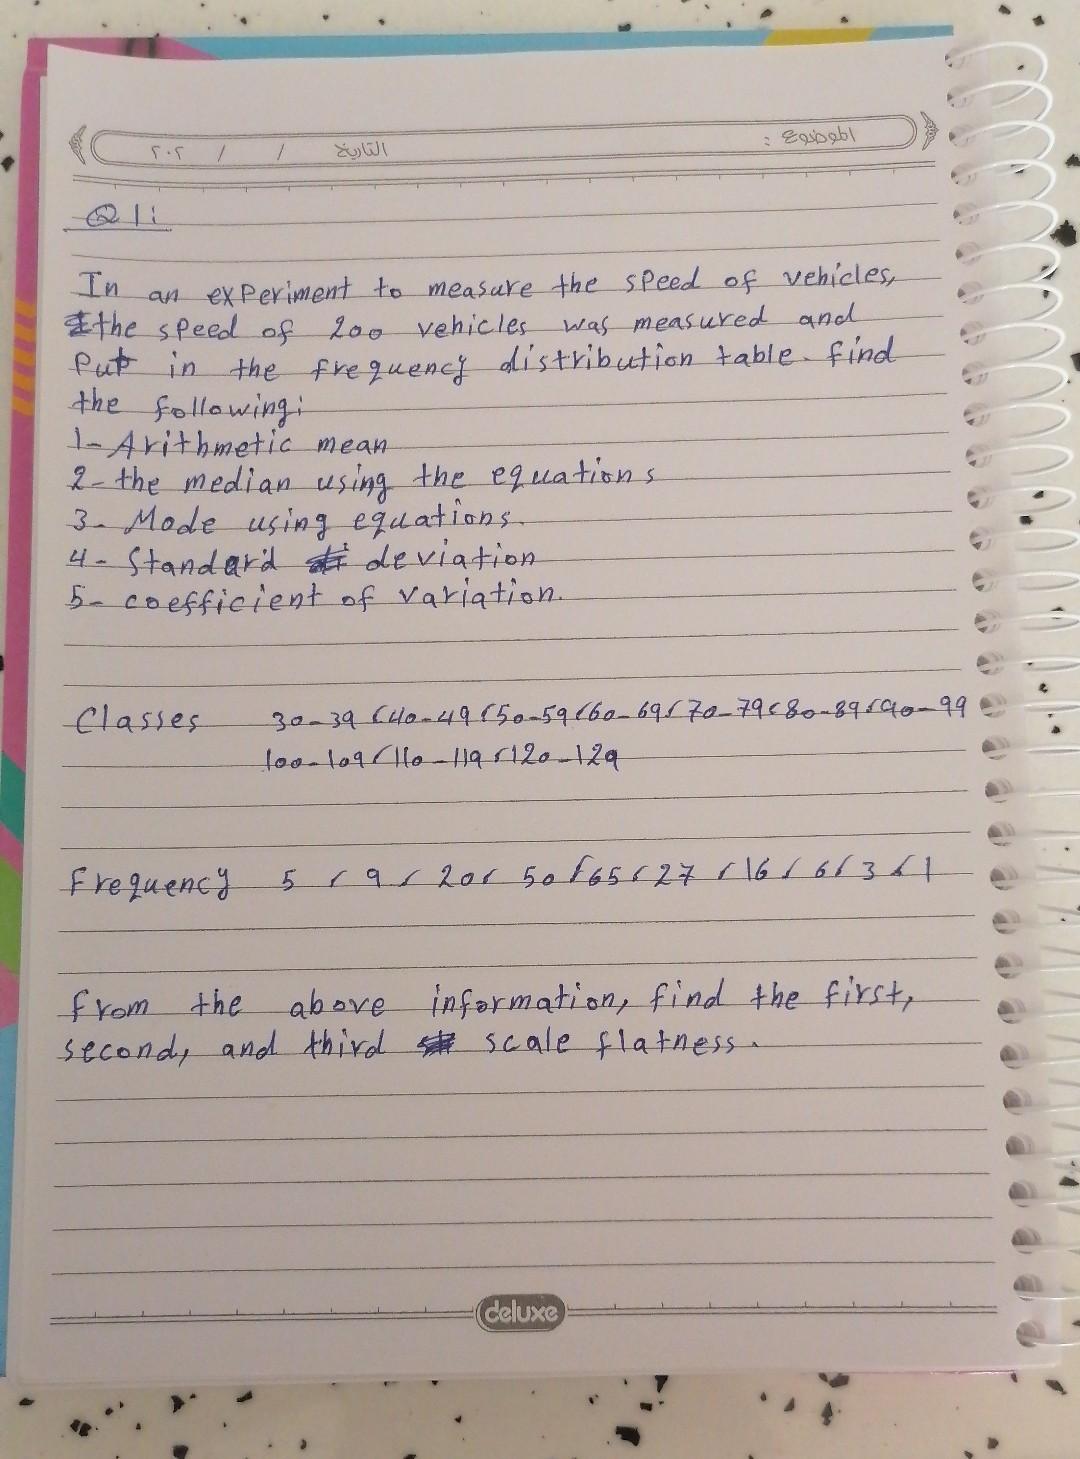 الموضوع :
التاريخ / / ٢٠٢
Q1:
In an experiment to measure the speed of vehicles,
the speed of 200 vehicles was measured and
Put in the frequency distribution table. find
the following:
1- Arithmetic mean
2- the median using the equations
3- Mode using equations.
4- Standard deviation
5- coefficient of variation.
Classes 30-39 , 40-49 , 50-59 , 60-69 , 70-79 , 80-89 , 90-99
100-109 , 110-119 , 120-129
Frequency 5 , 9 , 20 , 50 , 65 , 27 , 16 , 6 , 3 , 1
from the above information, find the first,
second, and third scale flatness.
deluxe